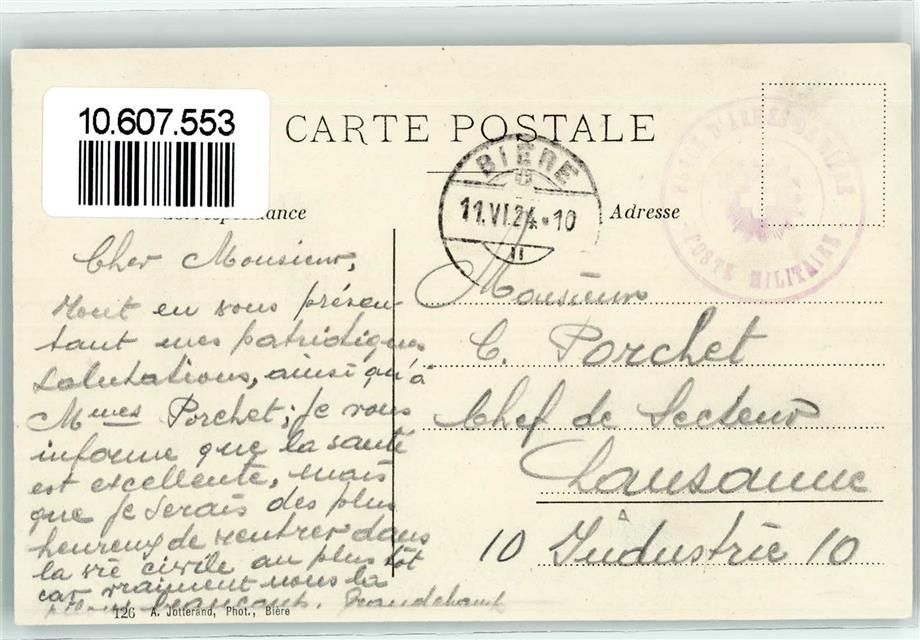 10.607.553
CARTE POSTALE
BIÈRE
11.VI.24.-10
PLACE D'ARMES DE BIÈRE
POSTE MILITAIRE
Correspondance
Adresse
Cher Monsieur,
Tout en vous présen
tant mes patriotiques
salutations, ainsi qu'à
Mmes Porchet; je vous
informe que la santé
est excellente, mais
que je serais des plus
heureux de rentrer dans
la vie civile au plus tôt
car vraiment nous la
beaucoup. Grandchamp
Monsieur
C. Porchet
Chef de Secteur
Lausanne
10 Industrie 10
126 A. Jotterand, Phot., Bière